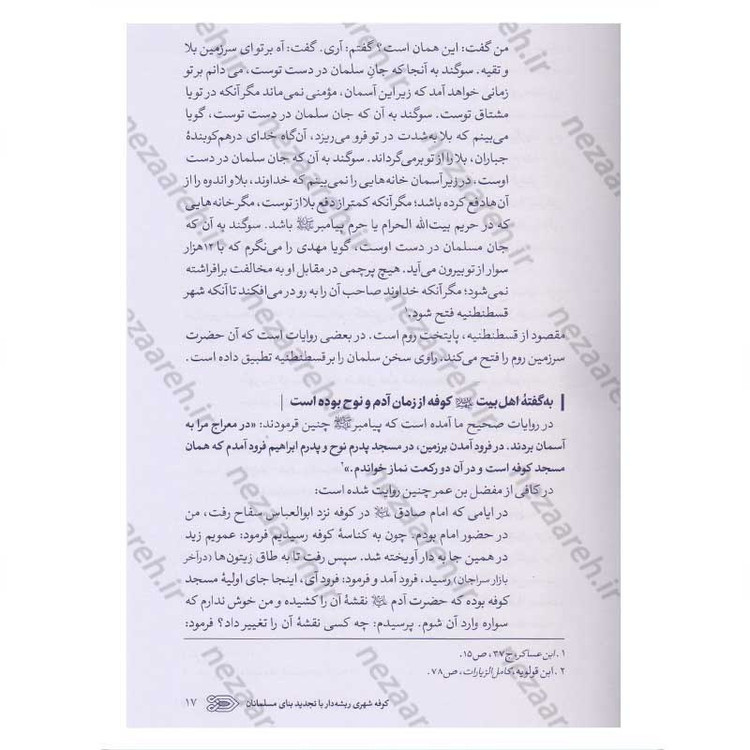 من گفت: این همان است؟ گفتم: آری. گفت: آه بر تو ای سرزمین بلا
و تقیه. سوگند به آنجا که جان سلمان در دست توست، می دانم بر تو
زمانی خواهد آمد که زیر این آسمان، مؤمنی نمی‌ماند مگر آنکه در تو یا
مشتاق توست. سوگند به آن که جان سلمان در دست توست، گویا
می‌بینم که بلا به‌شدت در تو فرو می‌ریزد، آن‌گاه خدای درهم‌کوبندهٔ
جباران، بلا را از تو برمی‌گرداند. سوگند به آن که جان سلمان در دست
اوست، در زیر آسمان خانه‌هایی را نمی‌بینم که خداوند، بلا و اندوه را از
آن‌ها دفع کرده باشد؛ مگر آنکه کمتر از دفع بلا از توست، مگر خانه‌هایی
که در حریم بیت‌الله الحرام یا حرم پیامبر ﷺ باشد. سوگند به آن که
جان مسلمان در دست اوست، گویا مهدی را می‌نگرم که با ۱۲هزار
سوار از تو بیرون می‌آید. هیچ پرچمی در مقابل او به مخالفت برافراشته
نمی‌شود؛ مگر آنکه خداوند صاحب آن را به رو در می‌افکند تا آنکه شهر
قسطنطنیه فتح شود.۱
مقصود از قسطنطنیه، پایتخت روم است. در بعضی روایات است که آن حضرت
سرزمین روم را فتح می‌کند. راوی سخن سلمان را بر قسطنطنیه تطبیق داده است.
به گفتهٔ اهل بیت کوفه از زمان آدم و نوح بوده است
در روایات صحیح ما آمده است که پیامبر ﷺ چنین فرمودند: «در معراج مرا به
آسمان بردند. در فرود آمدن بر زمین، در مسجد پدرم نوح و پدرم ابراهیم فرود آمدم که همان
مسجد کوفه است و در آن دو رکعت نماز خواندم.»۲
در کافی از مفضل بن عمر چنین روایت شده است:
در ایامی که امام صادق در کوفه نزد ابوالعباس سفاح رفت، من
در حضور امام بودم. چون به کناسهٔ کوفه رسیدیم فرمود: عمویم زید
در همین جا به دار آویخته شد. سپس رفت تا به طاق زیتون‌ها (در آخر
بازار سراجان) رسید، فرود آمد و فرمود: فرود آی، اینجا جای اولیهٔ مسجد
کوفه بوده که حضرت آدم نقشهٔ آن را کشیده و من خوش ندارم که
سواره وارد آن شوم. پرسیدم: چه کسی نقشهٔ آن را تغییر داد؟ فرمود:
۱. ابن عساکر، ج۳۷، ص۱۵.
۲. ابن قولویه، کامل الزیارات، ص۷۸.
کوفه شهری ریشه‌دار با تجدید بنای مسلمانان ۱۷
nezaareh.ir